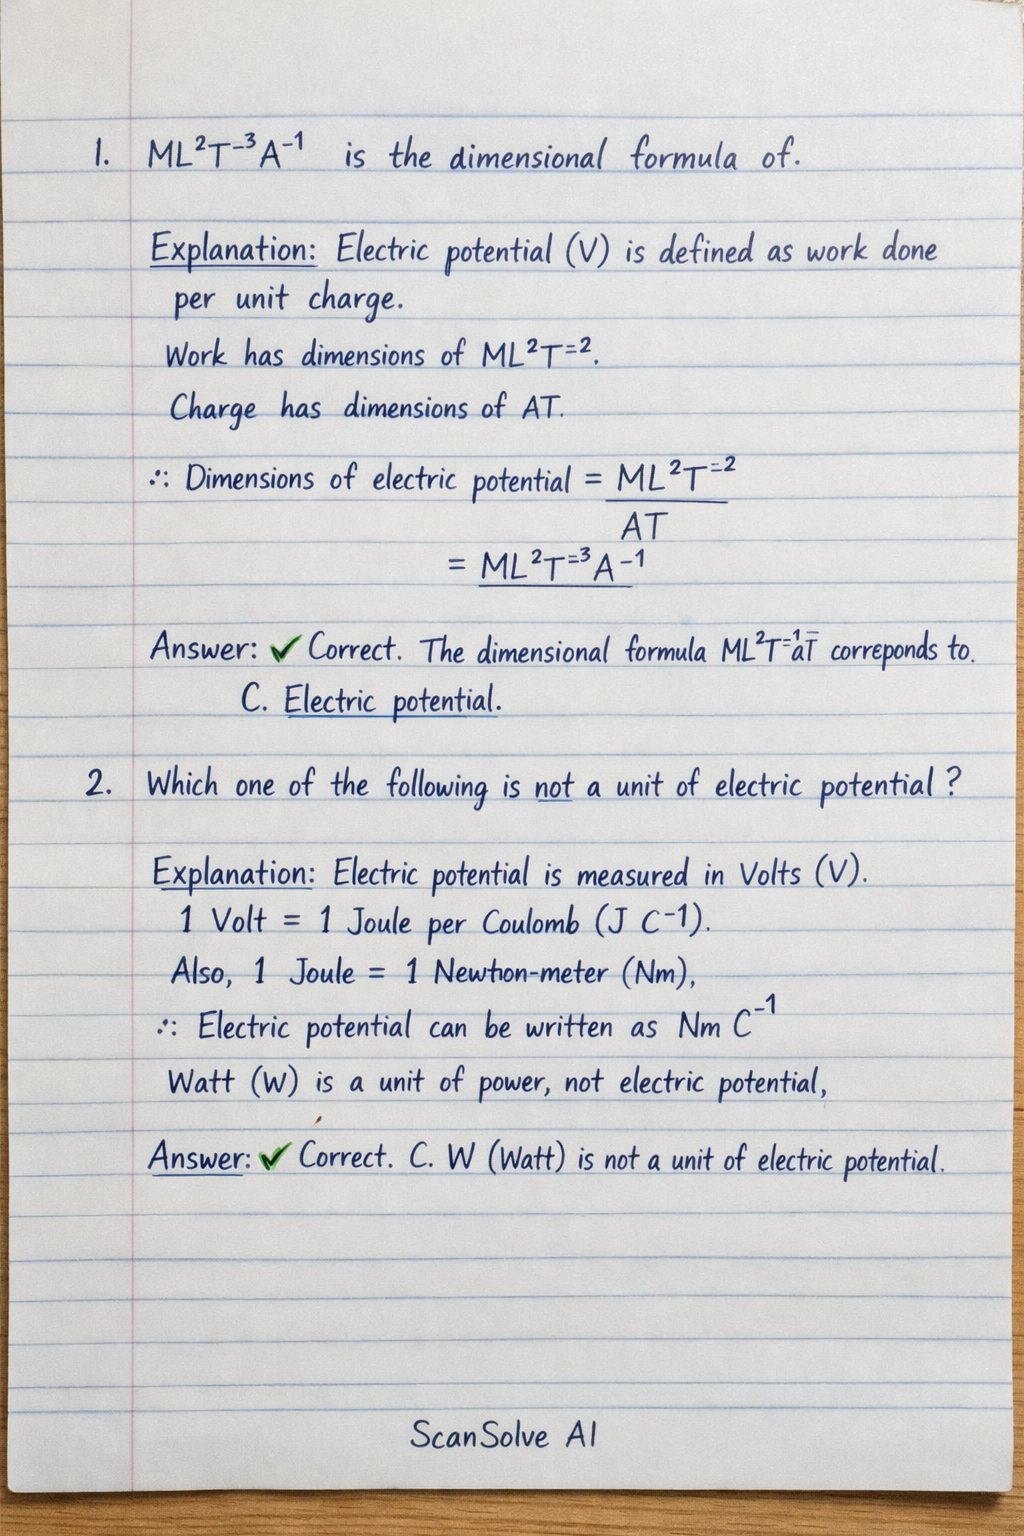 1. ML²T⁻³A⁻¹ is the dimensional formula of.
Explanation: Electric potential (V) is defined as work done
per unit charge.
Work has dimensions of ML²T⁼².
Charge has dimensions of AT.
∴ Dimensions of electric potential = ML²T⁼²
AT
= ML²T⁼³A⁻¹
Answer: ✔ Correct. The dimensional formula ML²T corresponds to.
C. Electric potential.
2. Which one of the following is not a unit of electric potential ?
Explanation: Electric potential is measured in Volts (V).
1 Volt = 1 Joule per Coulomb (J C⁻¹).
Also, 1 Joule = 1 Newton-meter (Nm),
∴ Electric potential can be written as Nm C⁻¹
Watt (W) is a unit of power, not electric potential,
Answer: ✔ Correct. C. W (Watt) is not a unit of electric potential.
ScanSolve AI